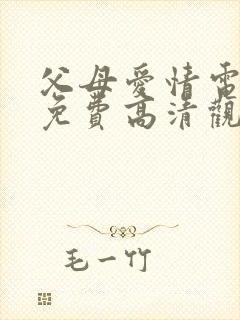 父母愛情電
免費高清觀
毛一竹